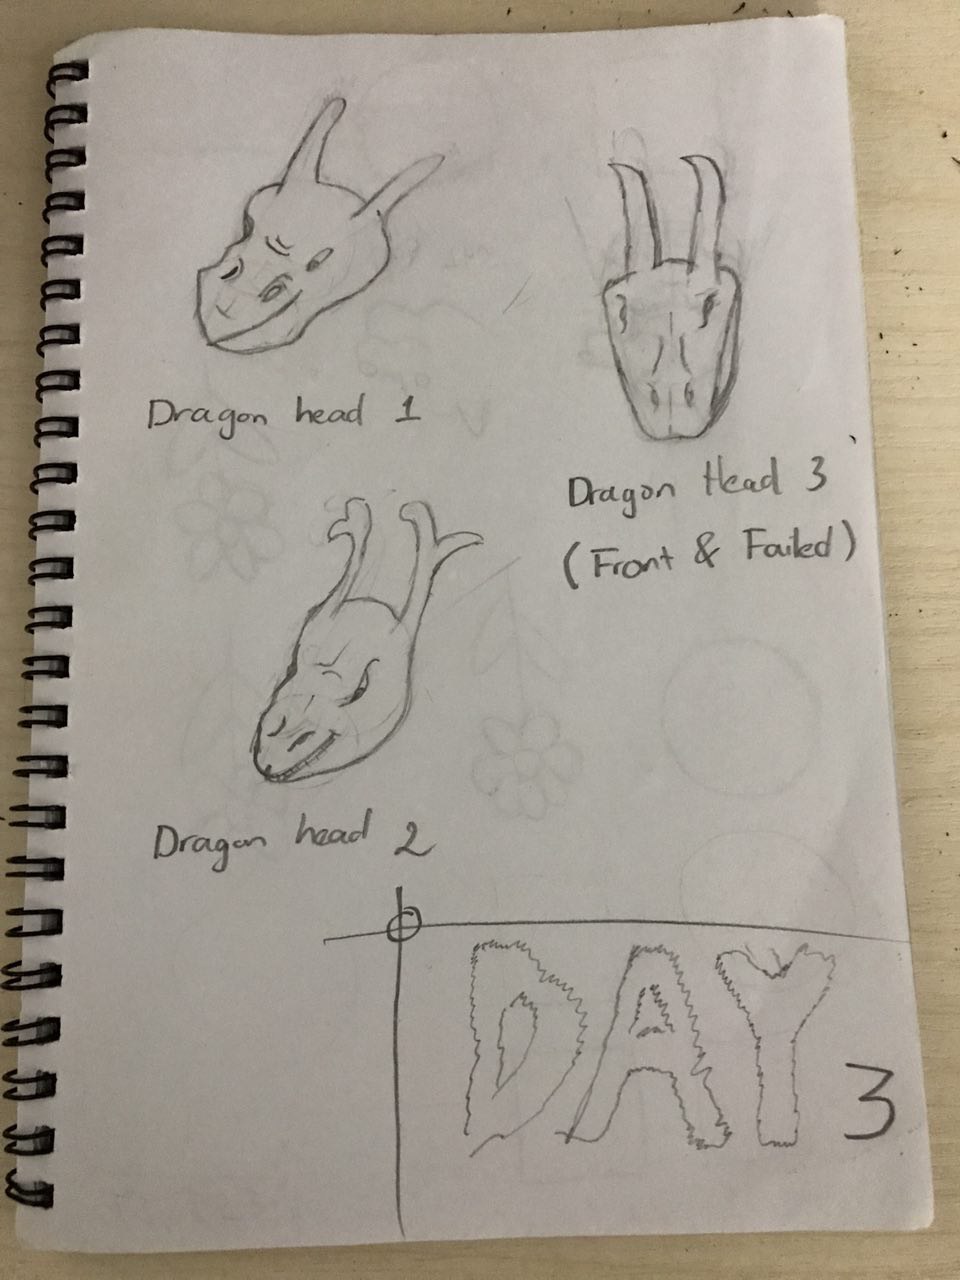 Dragon head 1
Dragon Head 3
(Front & Failed)
Dragon head 2
DAY 3